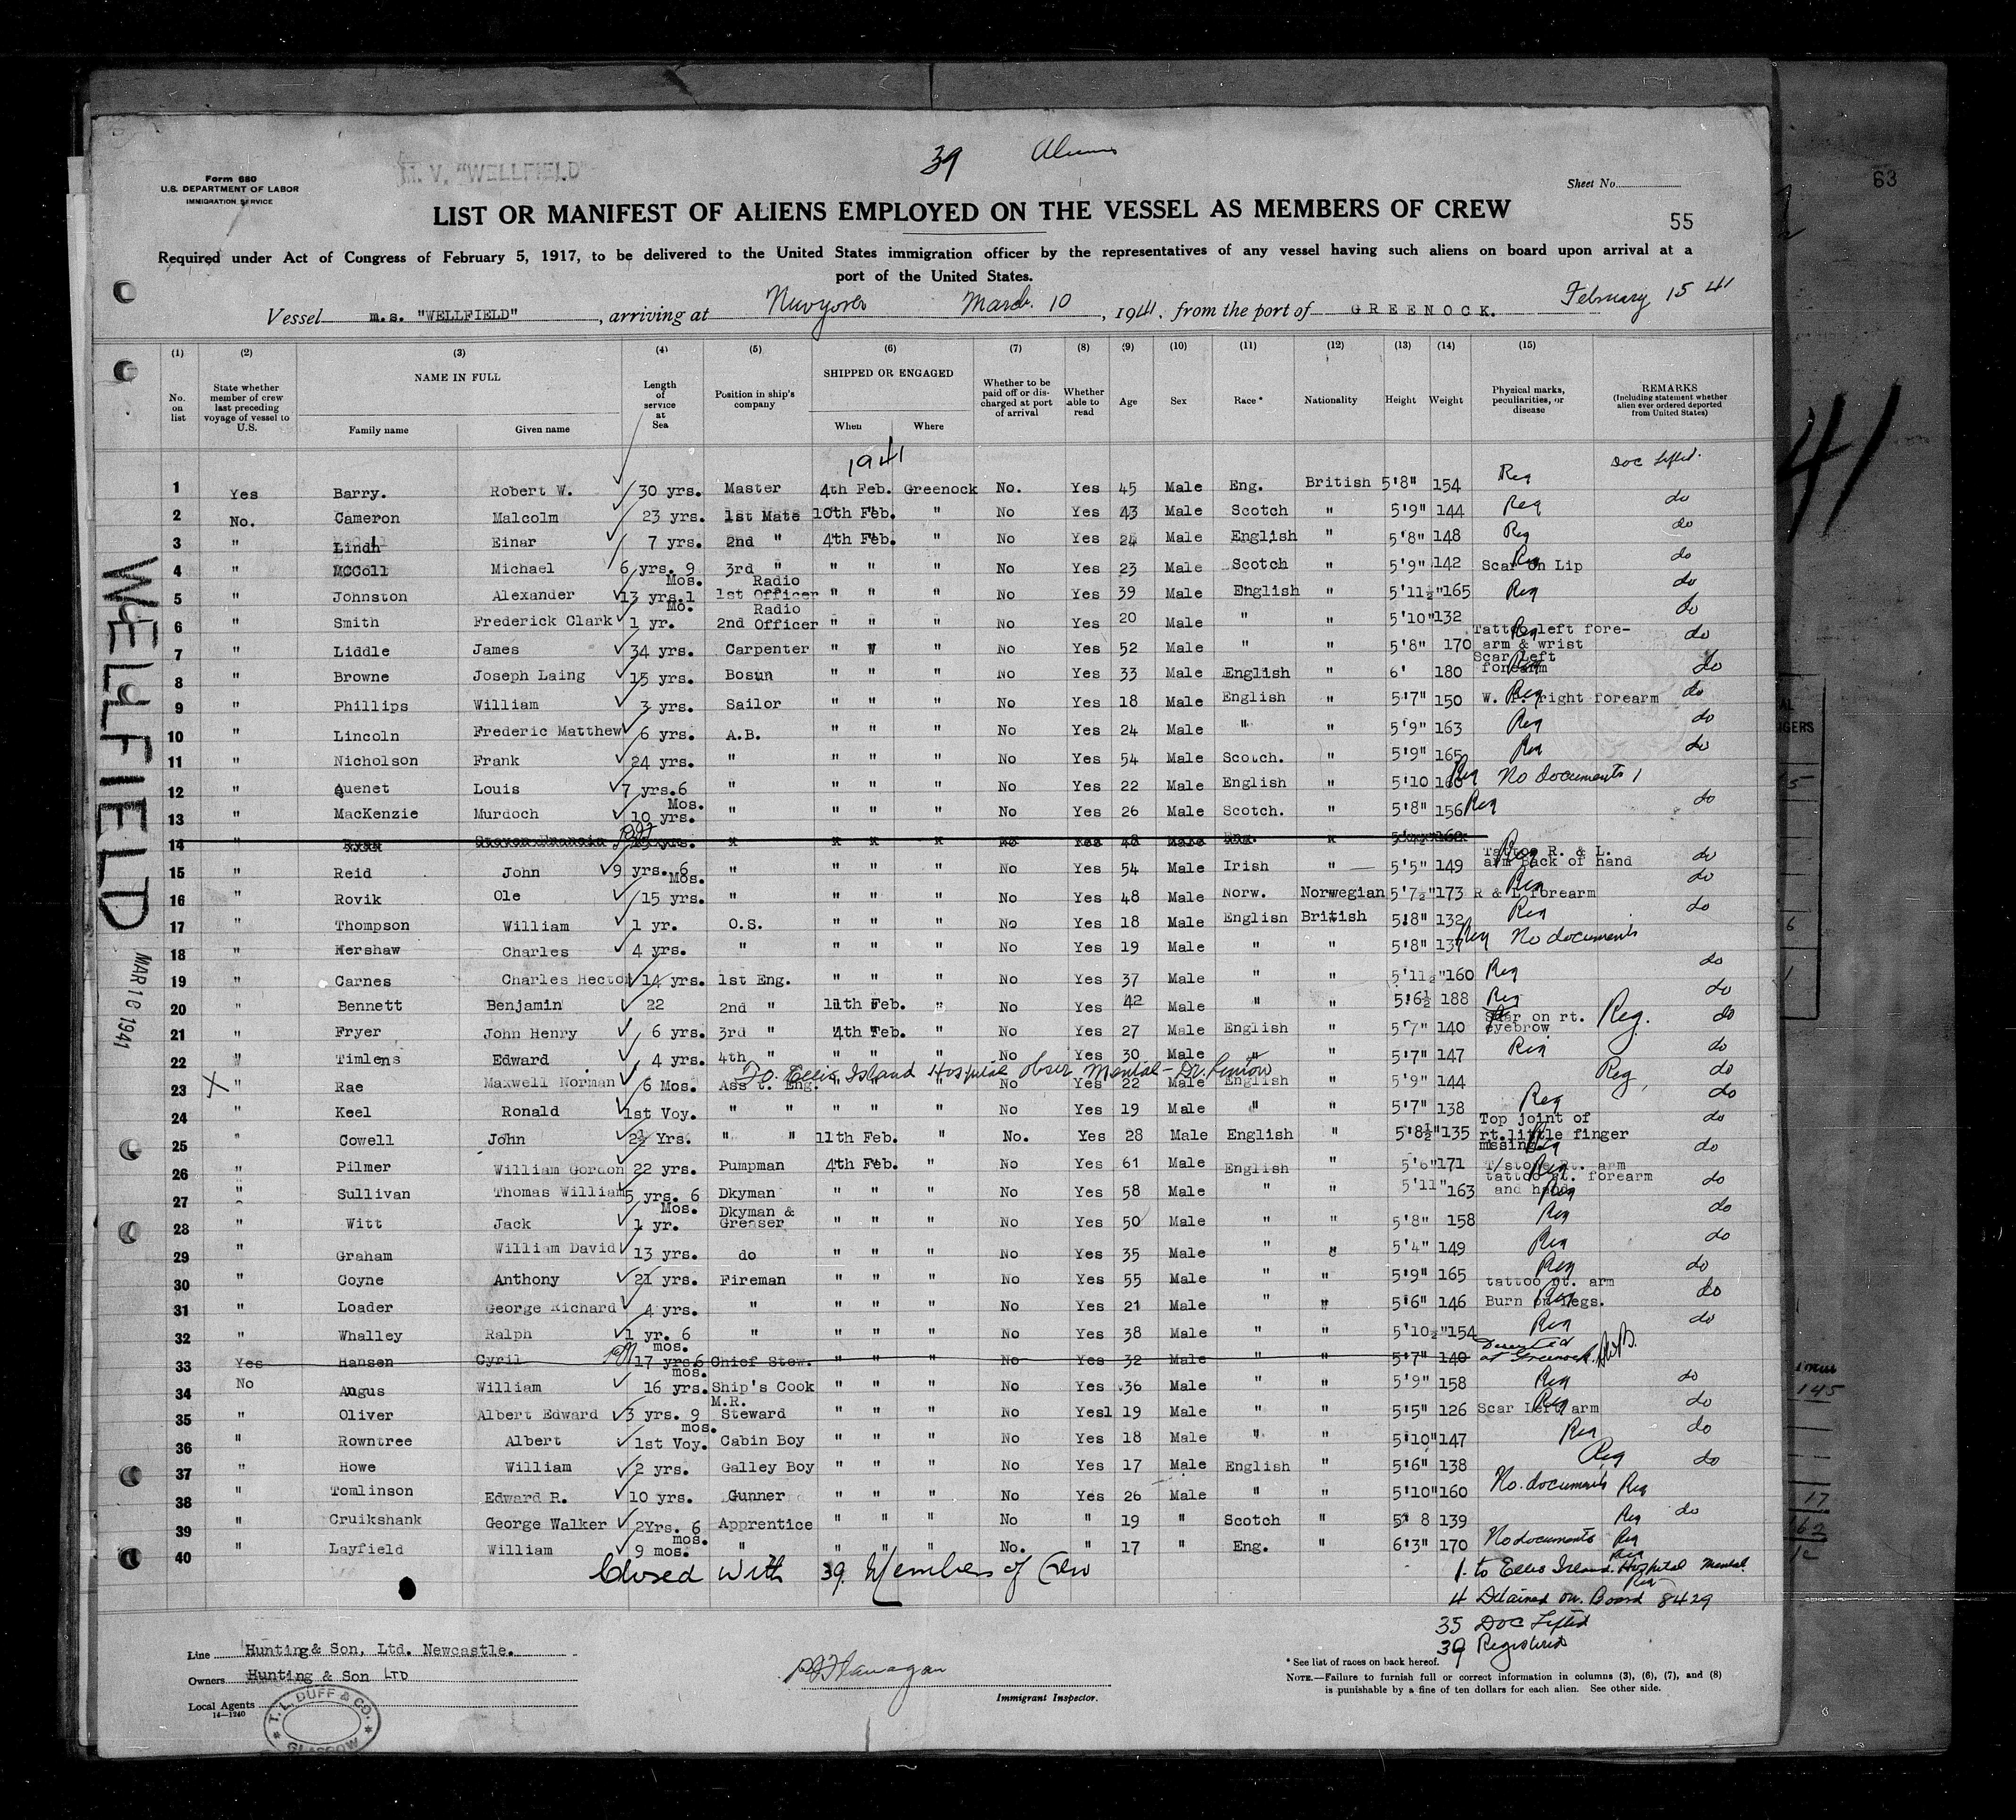 39 Aliens
Form 680
U.S. DEPARTMENT OF LABOR
IMMIGRATION SERVICE
M. V. "WELLFIELD"
Sheet No.
63
LIST OR MANIFEST OF ALIENS EMPLOYED ON THE VESSEL AS MEMBERS OF CREW
55
Required under Act of Congress of February 5, 1917, to be delivered to the United States immigration officer by the representatives of any vessel having such aliens on board upon arrival at a
port of the United States.
Vessel m.s. "WELLFIELD", arriving at Newyork March 10, 1941. from the port of GREENOCK. February 15 41
(1) (2) (3) (4) (5) (6) (7) (8) (9) (10) (11) (12) (13) (14) (15)
No. on list State whether member of crew last preceding voyage of vessel to U.S. NAME IN FULL Family name Given name Length of service at Sea Position in ship's company SHIPPED OR ENGAGED When Where Whether to be paid off or discharged at port of arrival Whether able to read Age Sex Race * Nationality Height Weight Physical marks, peculiarities, or disease REMARKS (Including statement whether alien ever ordered deported from United States)
1941
1 Yes Barry. Robert W. 30 yrs. Master 4th Feb. Greenock No. Yes 45 Male Eng. British 5'8" 154 Reg Doc Lifted.
2 No. Cameron Malcolm 23 yrs. 1st Mate 10th Feb. " No Yes 43 Male Scotch " 5'9" 144 Reg do
3 " Lindh Einar 7 yrs. 2nd " 4th Feb. " No Yes 24 Male English " 5'8" 148 Reg do
4 " MCColl Michael 6 yrs. 9 Mos. 3rd " " " " No Yes 23 Male Scotch " 5'9" 142 Scar on Lip Reg do
5 " Johnston Alexander 13 yrs. 1 Mo. 1st Radio Officer " " " No Yes 39 Male English " 5'11½" 165 Reg do
6 " Smith Frederick Clark 1 yr. 2nd Radio Officer " " " No Yes 20 Male " " 5'10" 132 do
7 " Liddle James 34 yrs. Carpenter " " " No Yes 52 Male " " 5'8" 170 Tattoo left fore-arm & wrist Reg do
8 " Browne Joseph Laing 15 yrs. Bosun " " " No Yes 33 Male English " 6' 180 Scar Left forearm Reg do
9 " Phillips William 3 yrs. Sailor " " " No Yes 18 Male English " 5'7" 150 right forearm Reg do
10 " Lincoln Frederic Matthew 6 yrs. A.B. " " " No Yes 24 Male " " 5'9" 163 Reg do
11 " Nicholson Frank 24 yrs. " " " " No Yes 54 Male Scotch. " 5'9" 165 Reg do
12 " Quenet Louis 7 yrs. 6 Mos. " " " " No Yes 22 Male English " 5'10 160 Reg No documents 1
13 " MacKenzie Murdoch 10 yrs. " " " " No Yes 26 Male Scotch. " 5'8" 156 Reg do
14 " Ryan Steven Francis No Yes 48 Male Eng.
15 " Reid John 9 yrs. 6 Mos. " " " " No Yes 54 Male Irish " 5'5" 149 Tattoo R. & L. arm Back of hand Reg do
16 " Rovik Ole 15 yrs. " " " " No Yes 48 Male Norw. Norwegian 5'7½" 173 R & L forearm Reg do
17 " Thompson William 1 yr. O.S. " " " No Yes 18 Male English British 5'8" 132 Reg do
18 " Kershaw Charles 4 yrs. " " " " No Yes 19 Male " " 5'8" 137 Reg No documents
19 " Carnes Charles Hector 14 yrs. 1st Eng. " " " No Yes 37 Male " " 5'11½" 160 Reg do
20 " Bennett Benjamin 22 2nd " 11th Feb. " No Yes 42 Male " " 5'6½ 188 Reg do
21 " Fryer John Henry 6 yrs. 3rd " 4th Feb. " No Yes 27 Male English " 5'7" 140 Scar on rt. eyebrow Reg. do
22 " Timlens Edward 4 yrs. 4th " " " " No Yes 30 Male " " 5'7" 147 Reg do
To Ellis Island Hospital obser Mental - Dr.
23 X " Rae Maxwell Norman 6 Mos. Ass't. Eng. " " " No Yes 22 Male English " 5'9" 144 Reg. do
24 " Keel Ronald 1st Voy. " " " " " No Yes 19 Male " " 5'7" 138 Reg do
25 " Cowell John 2½ Yrs. " " 11th Feb. " No. Yes 28 Male English " 5'8½" 135 Top joint of rt.little finger missing Reg do
26 " Pilmer William Gordon 22 yrs. Pumpman 4th Feb. " No Yes 61 Male English " 5'6" 171 Rt. arm Reg do
27 " Sullivan Thomas William 5 yrs. 6 Mos. Dkyman " " " No Yes 58 Male " " 5'11" 163 tattoo Rt. forearm and hand Reg do
28 " Witt Jack 1 yr. Dkyman & Greaser " " " No Yes 50 Male " " 5'8" 158 Reg do
29 " Graham William David 13 yrs. do " " " No Yes 35 Male " " 5'4" 149 Reg do
30 " Coyne Anthony 21 yrs. Fireman " " " No Yes 55 Male " " 5'9" 165 tattoo rt. arm Reg do
31 " Loader George Richard 4 yrs. " " " " No Yes 21 Male " " 5'6" 146 Burn on legs. Reg do
32 " Whalley Ralph 1 yr. 6 mos. " " " " No Yes 38 Male " " 5'10½" 154 Reg do
33 Yes Hansen Cyril 17 yrs. 6 mos. Chief Stew. " " " No Yes 32 Male " " 5'7" 140 Deserted at Greenock.
34 No Angus William 16 yrs. Ship's Cook " " " No Yes 36 Male " " 5'9" 158 Reg do
35 " Oliver Albert Edward 3 yrs. 9 mos. M.R. Steward " " " No Yes1 19 Male " " 5'5" 126 Scar Left arm Reg do
36 " Rowntree Albert 1st Voy. Cabin Boy " " " No Yes 18 Male " " 5'10" 147 Reg do
37 " Howe William 2 yrs. Galley Boy " " " No Yes 17 Male English " 5'6" 138 Reg do
38 " Tomlinson Edward R. 10 yrs. Gunner " " " No Yes 26 Male " " 5'10" 160 No. documents Reg
39 " Cruikshank George Walker 2Yrs. 6 mos. Apprentice " " " No " 19 " Scotch " 5' 8 139 Reg do
40 " Layfield William 9 mos. " " " " No. " 17 " Eng. " 6'3" 170 No documents Reg
Closed with 39 Members of Crew
1. to Ellis Island Hospital Mental.
4 Detained on Board 8429
35 Doc Lifted
39 Registered
Line Hunting & Son, Ltd. Newcastle.
Owners Hunting & Son LTD
Local Agents
14—1240
T. L. DUFF & CO. GLASGOW
Immigrant Inspector.
* See list of races on back hereof.
NOTE.—Failure to furnish full or correct information in columns (3), (6), (7), and (8)
is punishable by a fine of ten dollars for each alien. See other side.
WELLFIELD
MAR 10 1941
41